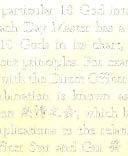 particular 10 God into
ach Day Master has a
10 Gods in its chart,
out principles. For exam
with the Direct Officer
mbination is known as
on which
plications to the relati
fficer Star and Gui